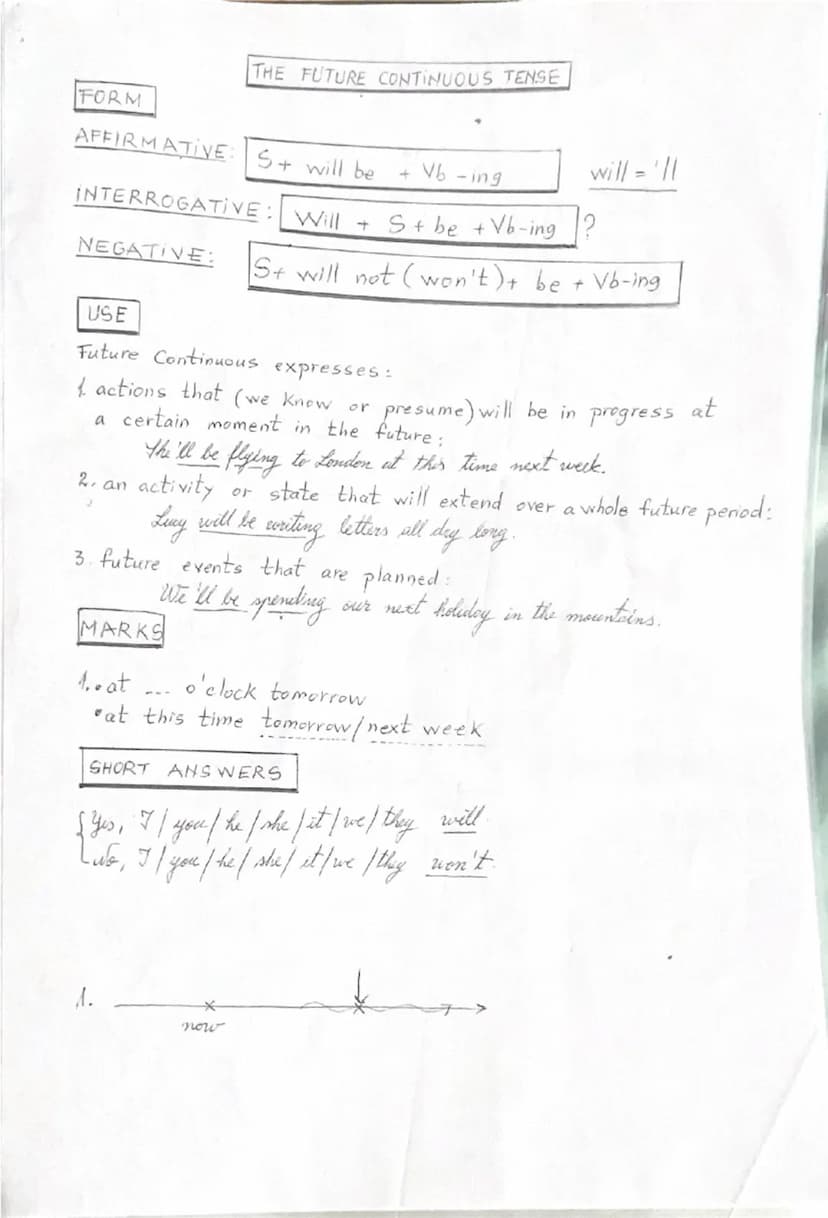 THE FUTURE CONTINUOUS TENSE
FORM
AFFIRMATIVE: S+ will be + Vb -ing will = 'll
INTERROGATIVE: Will + S + be + Vb-ing ?
NEGATIVE: S+ will not (won't)+ be + Vb-ing
USE
Future Continuous expresses:
1. actions that (we know or presume) will be in progress at
a certain moment in the future:
She'll be flying to London at this time next week.
2. an activity or state that will extend over a whole future period:
Lucy will be writing letters all day long.
3. future events that are planned:
We'll be spending our next holiday in the mountains.
MARKS
1. • at ... o'clock tomorrow
• at this time tomorrow/next week
SHORT ANSWERS
Yes, I/you/he/she/it/we/they will.
No, I/you/he/she/it/we/they won't.
1.
now